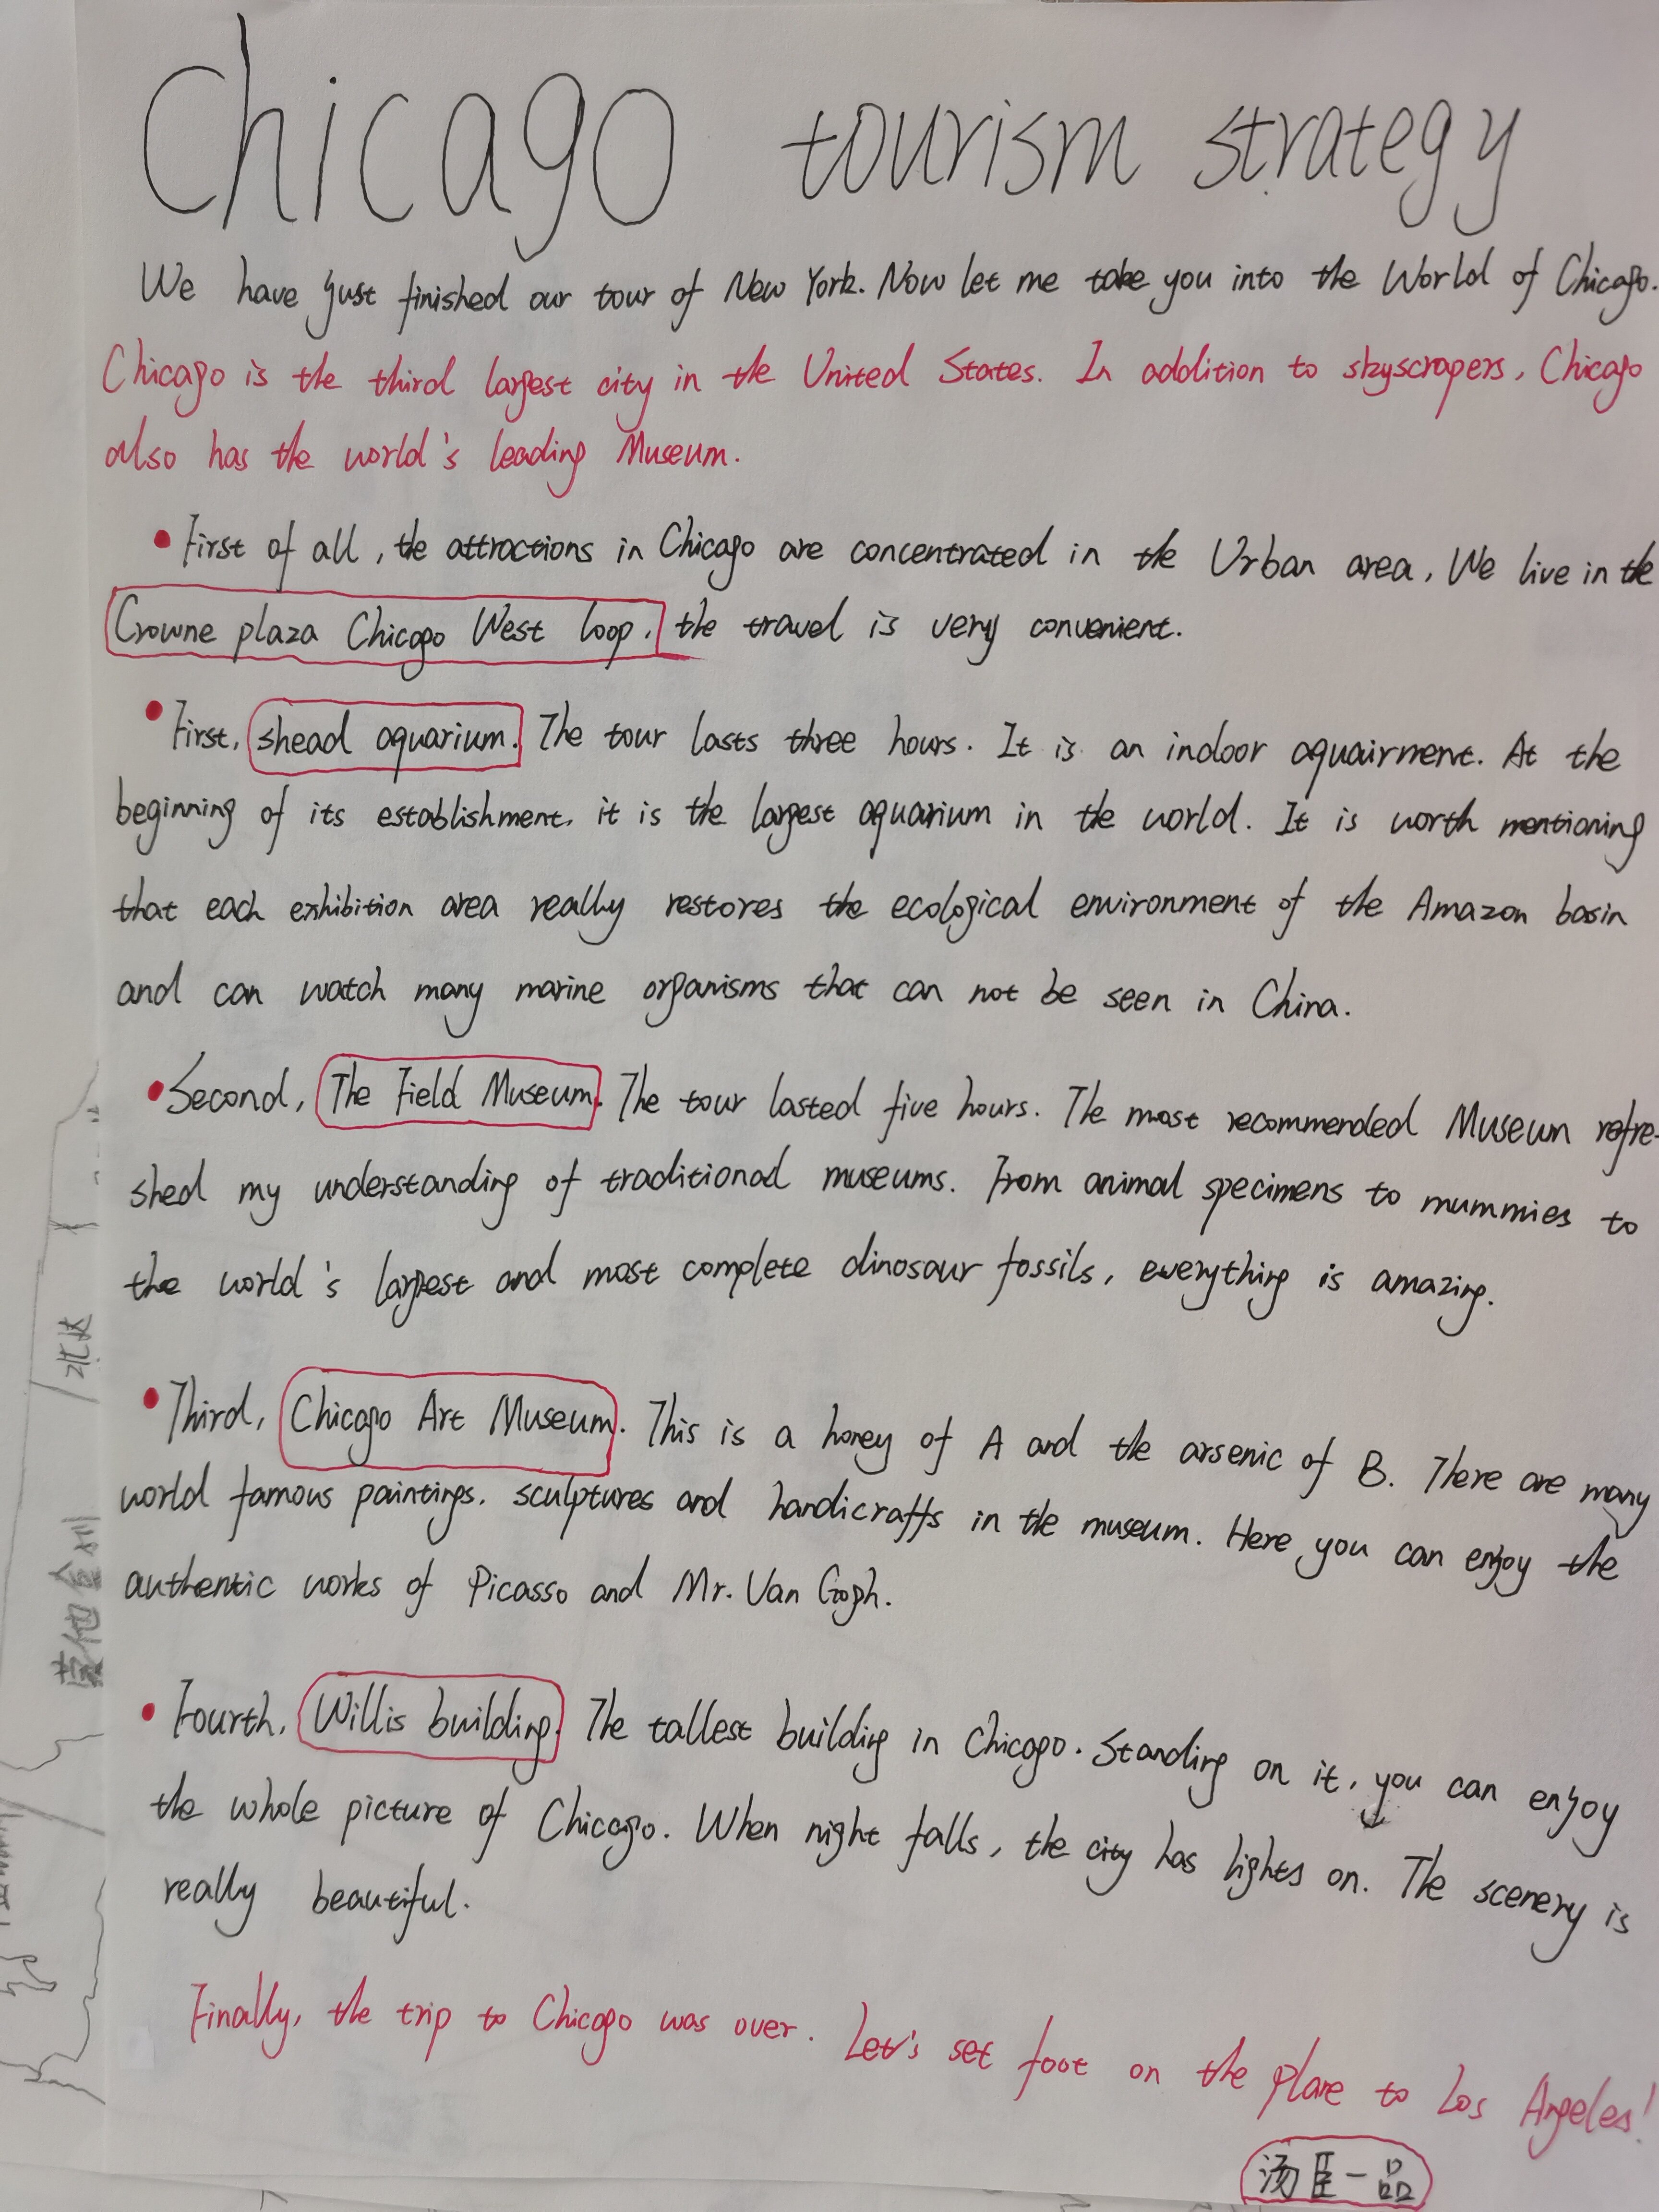 Chicago tourism strategy
We have just finished our tour of New York. Now let me take you into the World of Chicago.
Chicago is the third largest city in the United States. In addition to skyscrapers, Chicago
also has the world's leading Museum.
• First of all, the attractions in Chicago are concentrated in the Urban area, We live in the
Crowne plaza Chicago West loop, the travel is very convenient.
• First, shead aquarium. The tour lasts three hours. It is an indoor aquairment. At the
beginning of its establishment, it is the largest aquarium in the world. It is worth mentioning
that each exhibition area really restores the ecological environment of the Amazon basin
and can watch many marine organisms that can not be seen in China.
• Second, The Field Museum. The tour lasted five hours. The most recommended Museum refre-
shed my understanding of traditional museums. From animal specimens to mummies to
the world's largest and most complete dinosaur fossils, everything is amazing.
• Third, Chicago Art Museum. This is a honey of A and the arsenic of B. There are many
world famous paintings, sculptures and handicrafts in the museum. Here you can enjoy the
authentic works of Picasso and Mr. Van Gogh.
• Fourth, Willis building. The tallest building in Chicago. Standing on it, you can enjoy
the whole picture of Chicago. When night falls, the city has lights on. The scenery is
really beautiful.
Finally, the trip to Chicago was over. Let's set foot on the plane to Los Angeles!
汤臣一品